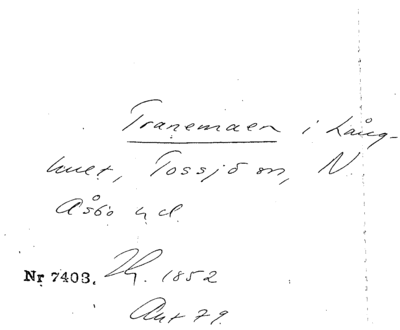 Tranemaen i Lång-
hult, Tossjö sn, N.
Åsbo hd.
Nr 7403. Th. 1852
Ant 79.